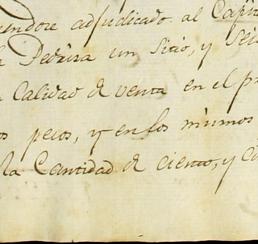 endose adjudicado al Capi
la Dehisa un Sitio, y Sei
Calidad de venta en el p
os pesos, y en los mismos
la Cantidad de ciento, y C